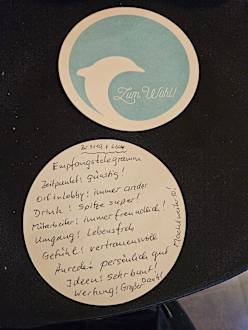 Zum Wohl!
Empfangstelegramm
Zeitpunkt: günstig!
Ort: in Lobby: immer anders
Drink: Spitze super!
Mitarbeiter: immer freundlich!
Umgang: Lebensfroh
Gefühl: vertrauensvoll
Anrede: persönlich gut
Ideen: Sehr bunt!
Wertung: Großer Dank!
Macht weiter so!